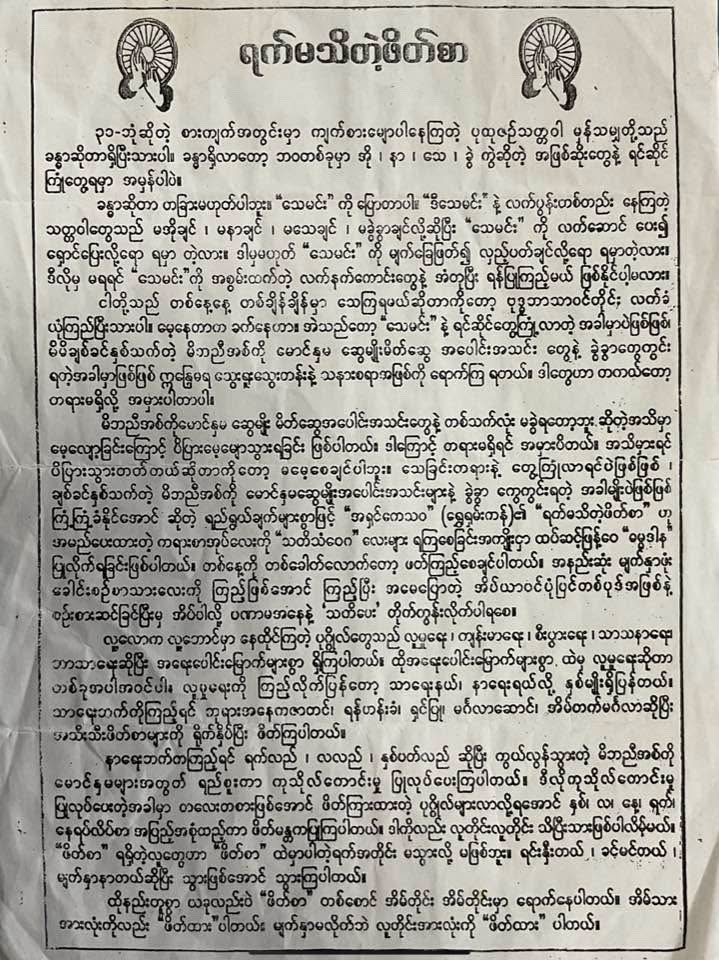 ရက်မသိတဲ့ဖိတ်စာ
၃၁-ဘုံဆိုတဲ့ စားကျက်အတွင်းမှာ ကျက်စားမျောပါနေကြတဲ့ ပုထုဇဉ်သတ္တဝါ မှန်သမျှတို့သည်
ခန္ဓာဆိုတာရှိပြီးသားပါ။ ခန္ဓာရှိလာတော့ ဘဝတစ်ခုမှာ အို ၊ နာ ၊ သေ ၊ ခွဲ ကွဲဆိုတဲ့ အဖြစ်ဆိုးတွေနဲ့ ရင်ဆိုင်
ကြုံတွေ့ရမှာ အမှန်ပါပဲ။
ခန္ဓာဆိုတာ တခြားမဟုတ်ပါဘူး။ “သေမင်း” ကို ပြောတာပါ။ “ဒီသေမင်း” နဲ့ လက်ပွန်းတစ်တည်း နေကြတဲ့
သတ္တဝါတွေသည် မအိုချင် ၊ မနာချင် ၊ မသေချင် ၊ မခွဲခွာချင်လို့ဆိုပြီး “သေမင်း” ကို လက်ဆောင် ပေး၍
ရှောင်ပြေးလို့ရော ရမှာ တဲ့လား။ ဒါမှမဟုတ် “သေမင်း” ကို မျက်ခြေဖြတ်၍ လှည့်ပတ်ချင်လို့ရော ရမှာတဲ့လား။
ဒီလိုမှ မရရင် “သေမင်း”ကို အစွမ်းထက်တဲ့ လက်နက်ကောင်းတွေနဲ့ အံတုပြီး ရန်ပြုကြည့်မယ် ဖြစ်နိုင်ပါ့မလား။
ငါတို့သည် တစ်နေ့နေ့ တစ်ချိန်ချိန်မှာ သေကြရမယ်ဆိုတာကိုတော့ ဗုဒ္ဓဘာသာဝင်တိုင်း လက်ခံ
ယုံကြည်ပြီးသားပါ။ မေ့နေတာက ခက်နေတာ။ အဲသည်တော့ “သေမင်း” နဲ့ ရင်ဆိုင်တွေ့ကြုံလာတဲ့ အခါမှာပဲဖြစ်ဖြစ်၊
မိမိချစ်ခင်နှစ်သက်တဲ့ မိဘညီအစ်ကို မောင်နှမ ဆွေမျိုးမိတ်ဆွေ အပေါင်းအသင်း တွေနဲ့ ခွဲခွာကွေကွင်း
ရတဲ့အခါမှာဖြစ်ဖြစ် ဣန္ဒြေမရ သွေးရူးသွေးတန်းနဲ့ သနားစရာအဖြစ်ကို ရောက်ကြ ရတယ်။ ဒါတွေဟာ တကယ်တော့
တရားမရှိလို့ အမှားပါတာပါ။
မိဘညီအစ်ကိုမောင်နှမ ဆွေမျိုး မိတ်ဆွေအပေါင်းအသင်းတွေနဲ့ တစ်သက်လုံး မခွဲရတော့ဘူး ဆိုတဲ့အသိမှာ
မေ့လျော့ခြင်းကြောင့် ပိပြားမေ့မျောသွားရခြင်း ဖြစ်ပါတယ်။ ဒါကြောင့် တရားမရှိရင် အမှားပိတယ်။ အသိမှားရင်
ပိပြားသွားတတ်တယ်ဆိုတာကိုတော့ မမေ့စေချင်ပါဘူး။ သေခြင်းတရားနဲ့ တွေ့ကြုံလာရင်ပဲဖြစ်ဖြစ် ၊
ချစ်ခင်နှစ်သက်တဲ့ မိဘညီအစ်ကို မောင်နှမဆွေမျိုးအပေါင်းအသင်းများနဲ့ ခွဲခွာ ကွေကွင်းရတဲ့ အခါမျိုးပဲဖြစ်ဖြစ်
ကြံ့ကြံ့ခံနိုင်အောင် ဆိုတဲ့ ရည်ရွယ်ချက်များစွာဖြင့် “အရှင်ကေသဝ” (ရွှေရှမ်းကန်)၏ “ရက်မသိတဲ့ဖိတ်စာ” ဟု
အမည်ပေးထားတဲ့ ကရားစာအုပ်လေးကို “သတိသံဝေဂ” လေးများ ရကြစေခြင်းအကျိုးငှာ ထပ်ဆင့်ဖြန့်ဝေ “ဓမ္မဒါန”
ပြုလိုက်ရခြင်းဖြစ်ပါတယ်။ တစ်နေ့ကို တစ်ခေါက်လောက်တော့ ဖတ်ကြည့်စေချင်ပါတယ်။ အနည်းဆုံး မျက်နှာဖုံး
ခေါင်းစဉ်စာသားလေးကို ကြည့်ဖြစ်အောင် ကြည့်ပြီး အမေပြောတဲ့ အိပ်ယာဝင်ပုံပြင်တစ်ပုဒ်အဖြစ်နဲ့
စဉ်းစားဆင်ခြင်ပြီးမှ အိပ်ပါလို့ ပဏာမအနေနဲ့ ‘သတိပေး’ တိုက်တွန်းလိုက်ပါရစေ။
လူ့လောက လူ့ဘောင်မှာ နေထိုင်ကြတဲ့ ပုဂ္ဂိုလ်တွေသည် လူမှုရေး ၊ ကျန်းမာရေး ၊ စီးပွားရေး ၊ သာသနာရေး၊
ဘာသာရေးဆိုပြီး အရေးပေါင်းမြောက်များစွာ ရှိကြပါတယ်။ ထိုအရေးပေါင်းမြောက်များစွာ ထဲမှ လူမှုရေးဆိုတာ
တစ်ခုအပါအဝင်ပါ။ လူမှုရေးကို ကြည့်လိုက်ပြန်တော့ သာရေးနယ်၊ နာရေးရယ်လို့ နှစ်မျိုးရှိပြန်တယ်။
သာရေးဘက်ကိုကြည့်ရင် ဘုရားအနေကဇာတင်၊ ရန်ဟန်းခံ၊ ရှင်ပြု၊ မင်္ဂလာဆောင်၊ အိမ်တက်မင်္ဂလာဆိုပြီး
အသီးသီးဖိတ်စာများကို ရိုက်နှိပ်ပြီး ဖိတ်ကြပါတယ်။
နာရေးဘက်ကကြည့်ရင် ရက်လည် ၊ လလည် ၊ နှစ်ပတ်လည် ဆိုပြီး ကွယ်လွန်သွားတဲ့ မိဘညီအစ်ကို
မောင်နှမများအတွက် ရည်စူးကာ ကုသိုလ်ကောင်းမှု ပြုလုပ်ပေးကြပါတယ်။ ဒီလိုကုသိုလ်ကောင်းမှု
ပြုလုပ်ပေးတဲ့အခါမှာ တလေးတစားဖြစ်အောင် ဖိတ်ကြားထားတဲ့ ပုဂ္ဂိုလ်များလာလို့ရအောင် နှစ်၊ လ၊ နေ့၊ ရက်၊
နေရပ်လိပ်စာ အပြည့်အစုံထည့်ကာ ဖိတ်မန္တကပြုကြပါတယ်။ ဒါကိုလည်း လူတိုင်းလူတိုင်း သိပြီးသားဖြစ်ပါလိမ့်မယ်။
“ဖိတ်စာ” ရရှိတဲ့လူတွေဟာ “ဖိတ်စာ” ထဲမှာပါတဲ့ရက်အတိုင်း မသွားလို့ မဖြစ်ဘူး။ ရင်းနှီးတယ် ၊ ခင်မင်တယ် ၊
မျက်နှာနာတယ်ဆိုပြီး သွားဖြစ်အောင် သွားကြပါတယ်။
ထိုနည်းတူစွာ ယခုလည်းဝဲ “ဖိတ်စာ” တစ်စောင် အိမ်တိုင်း အိမ်တိုင်းမှာ ရောက်နေပါတယ်။ အိမ်သား
အားလုံးကိုလည်း “ဖိတ်ထား”ပါတယ်။ မျက်နှာမလိုက်ဘဲ လူတိုင်းအားလုံးကို “ဖိတ်ထား” ပါတယ်။